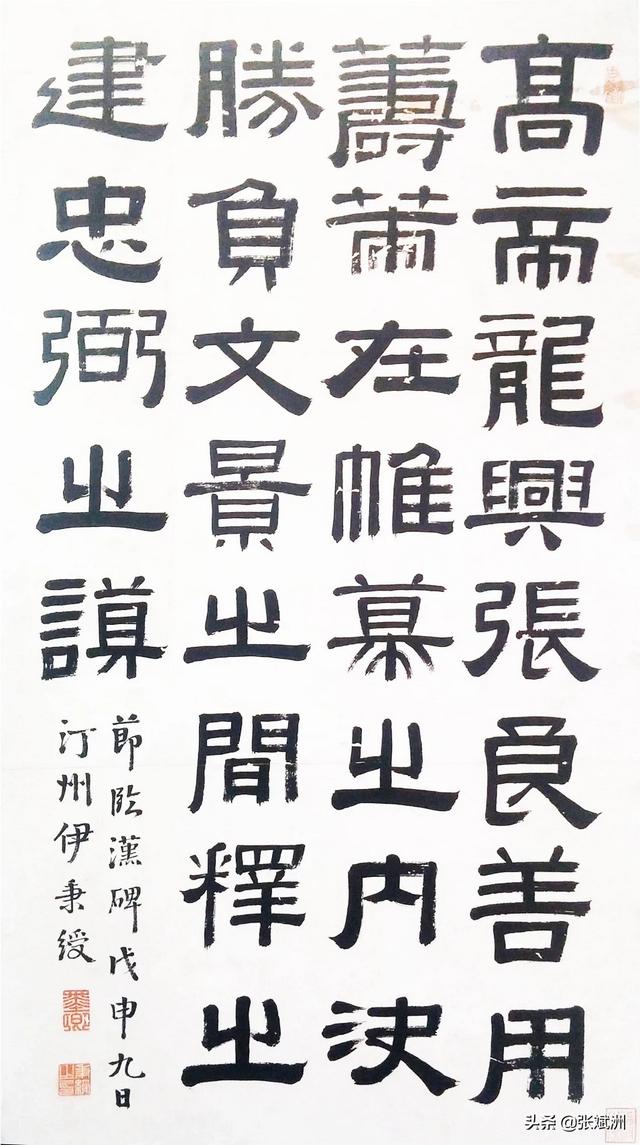 高帝龍興張良善用
籌䇲在帷幕之内決
勝負文景之間釋之
建忠弼之謨
節臨漢碑戊申九日
汀州伊秉綬
头条 @张斌洲